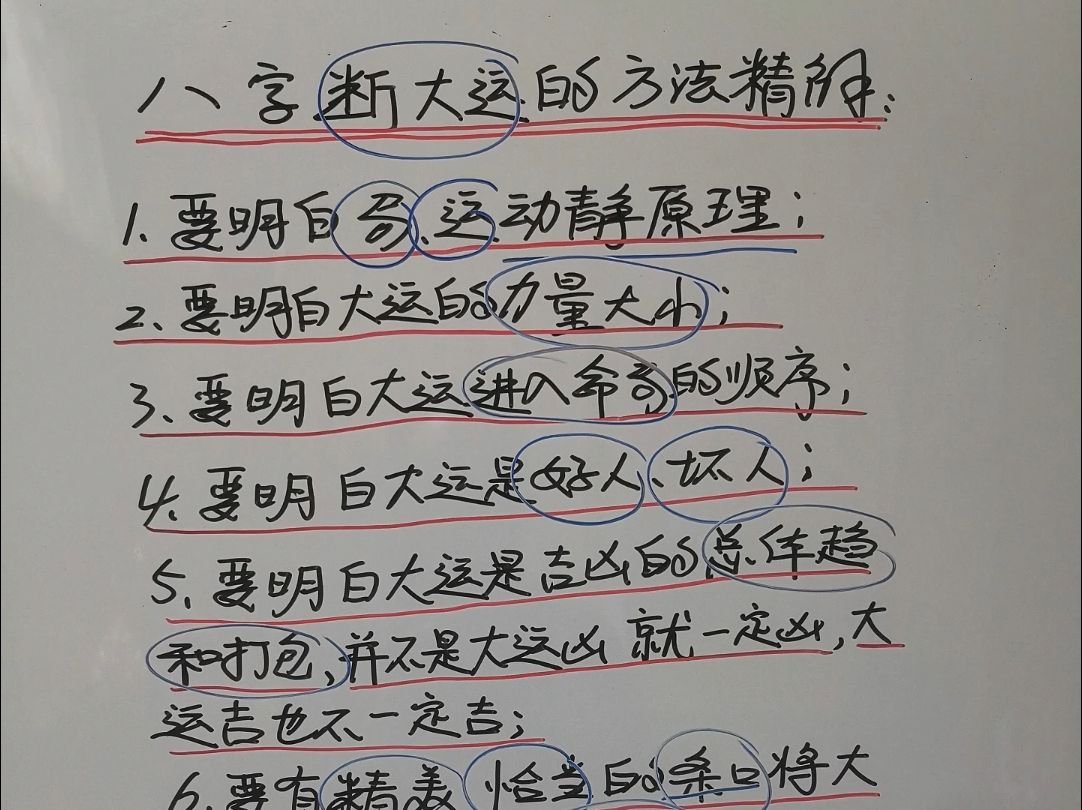 八字断大运的方法精解：
1、要明白命、运动静原理；
2、要明白大运的力量大小；
3、要明白大运进入命局的顺序；
4、要明白大运是好人、坏人；
5、要明白大运是吉凶的总体趋
和打包，并不是大运凶就一定凶，大
运吉也不一定吉；
6、要有精美恰当的条口将大